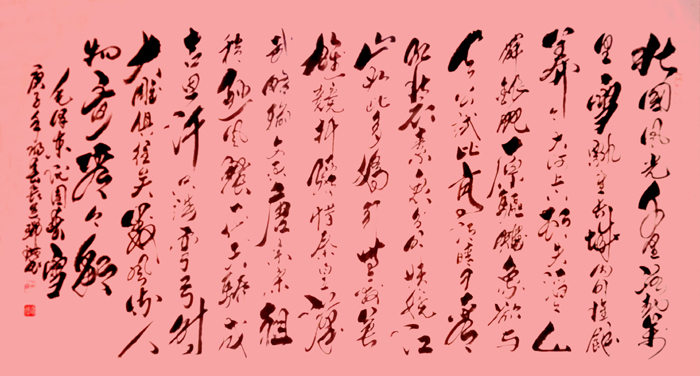 北國風光千里冰封萬
里雪飘望長城内外惟餘
莽莽大河上下顿失滔滔山
舞銀蛇原驰蜡象欲与
天公试比高须晴日看
红装素裹分外妖娆江
山如此多娇引無数英
雄競折腰惜秦皇漢
武略输文采唐宗宋祖
稍逊風騷一代天骄成
吉思汗只識弯弓射
大雕俱往矣数風流人
物还看今朝
毛泽东沁園春雪
庚子年